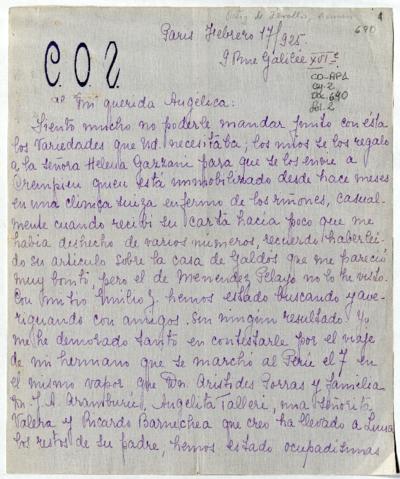 690
Paris Febrero 17/925.
9 Rue Galilée XVIe
C.O.Z.
CO-APA
Doc. 690
Mi querida Angélica:
Siento mucho no poderle mandar junto con ésta
los Variedades que Ud. necesitaba; los míos se los regalo
a la señora Helena Gazzani para que se los envie a
Crempien quien está inmobilizado desde hace meses
en una clínica suiza enfermo de los riñones, casual-
mente cuando recibí su carta hacía poco que me
había deshecho de varios números, recuerdo haber leí-
do su artículo sobre la casa de Galdós que me pareció
muy bonito, pero el de Menendez Pelayo no lo he visto.
Con mi tío Emilio Z. hemos estado buscando y ave-
riguando con amigos. Sin ningún resultado. Yo
me he demorado tanto en contestarle por el viaje
de mi hermano que se marchó al Perú el 7 en
el mismo vapor que Dn. Aristides Porras y familia
Dn. J. A. Aramburú, Angelita Talleri, una señorita
Valera y Ricardo Barnechea que creo ha llevado a Lima
los restos de su padre, hemos estado ocupadísimas